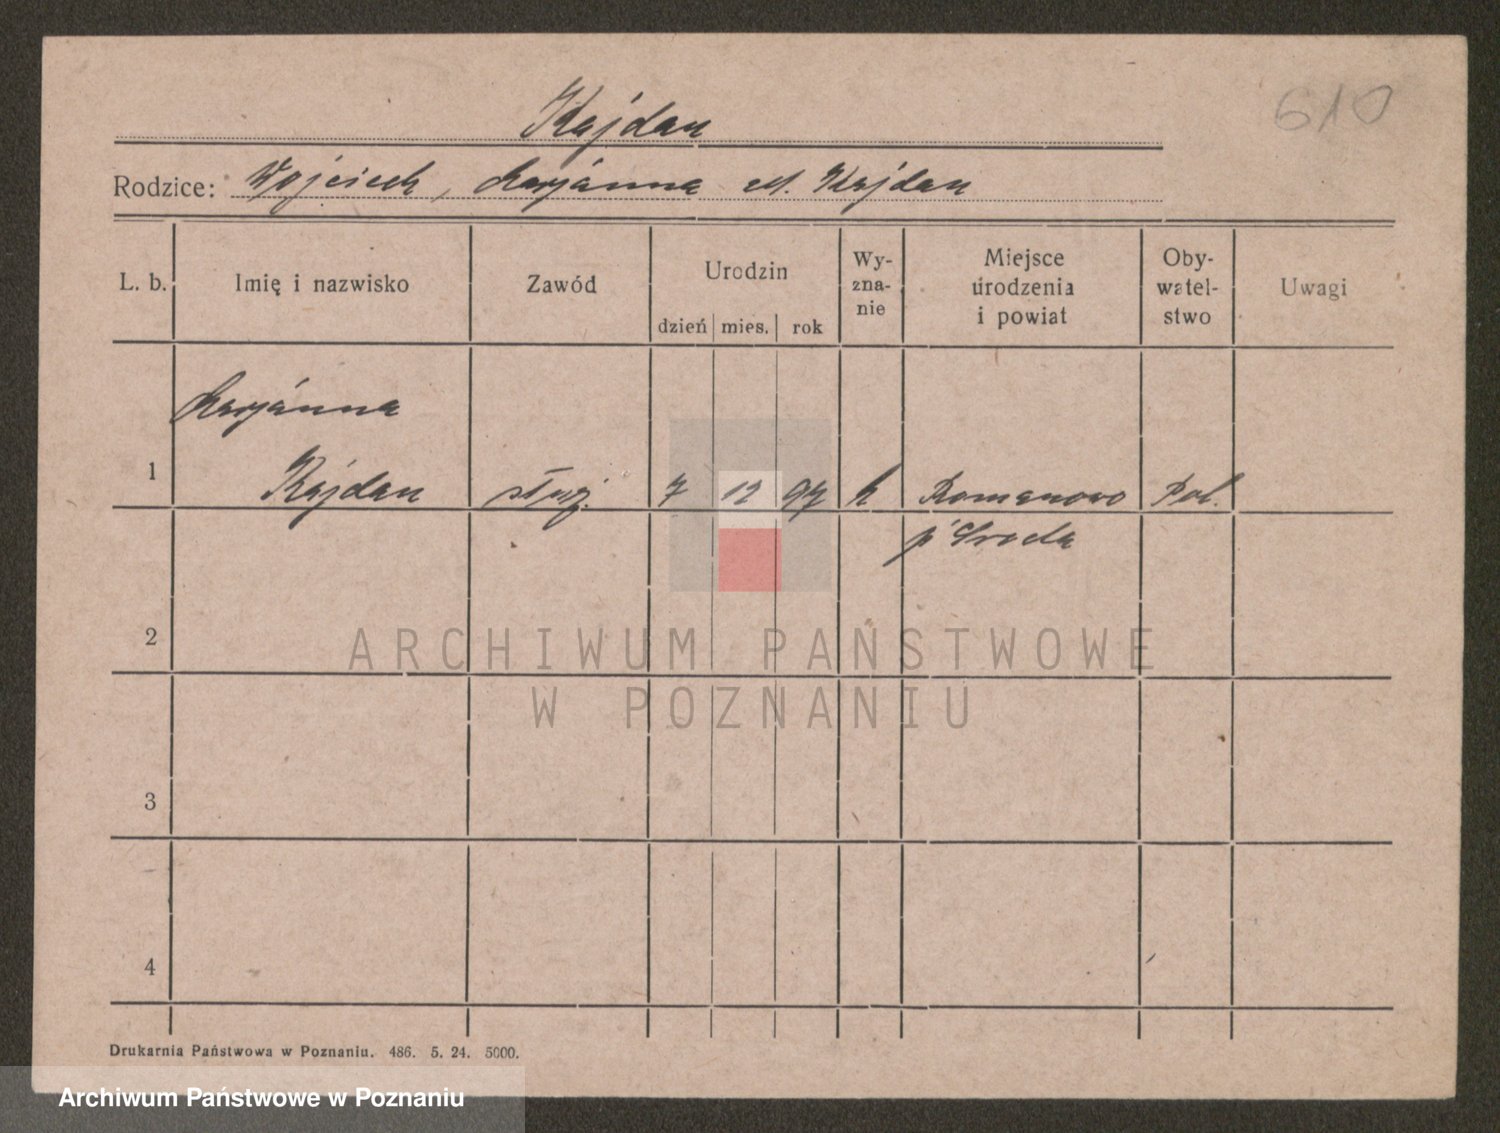 610
Kajdan
Rodzice: Wojciech, Maryánna M. Kajdan
L. b. Imię i nazwisko Zawód Urodzin Wy-zna-nie Miejsce urodzenia i powiat Oby-watel-stwo Uwagi
dzień mies. rok
Maryánna
1 Kajdan służ. 7 12 97 k Romanowo Pol.
p Sroda
2
ARCHIWUM PAŃSTWOWE
W POZNANIU
3
4
Drukarnia Państwowa w Poznaniu. 486. 5. 24. 5000.
Archiwum Państwowe w Poznaniu